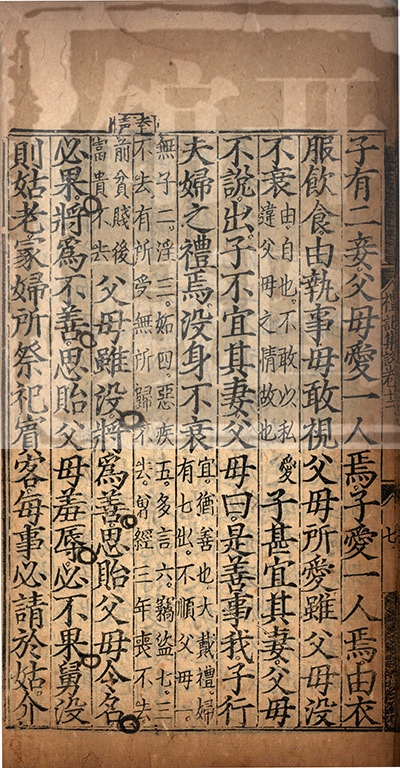 子有二妾父母愛一人焉子愛一人焉由衣
服飲食由執事毋敢視父母所愛雖父母沒
不衰
由自也不敢以私
違父母之情故也
愛
子甚宜其妻父母
不說出子不宜其妻父母曰是善事我子行
夫婦之禮焉沒身不衰
宜猶善也大戴禮婦
有七出不順父母一
無子二淫三妬四惡疾五多言六竊盜七三
不去有所受無所歸不去曾經三年喪不去
前貧賤後
富貴不去
父母雖沒將爲善思貽父母令名
必果將爲不善思貽父母羞辱必不果舅沒
則姑老冢婦所祭祀賓客每事必請於姑介